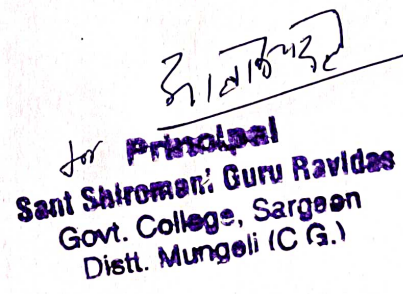 for Principal
Sant Shiromani Guru Ravidas
Govt. College, Sargaon
Distt. Mungeli (C.G.)